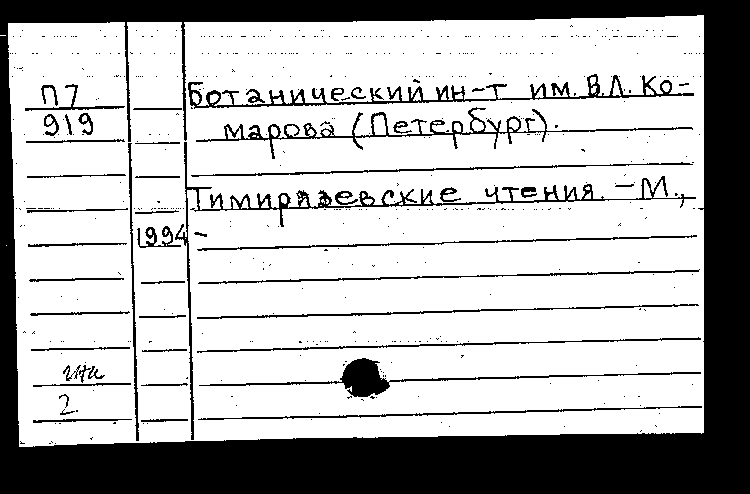 П7 Ботанический ин-т им. В.Л. Ко-
919 марова (Петербург).
Тимирязевские чтения. - М.,
1994 -
2